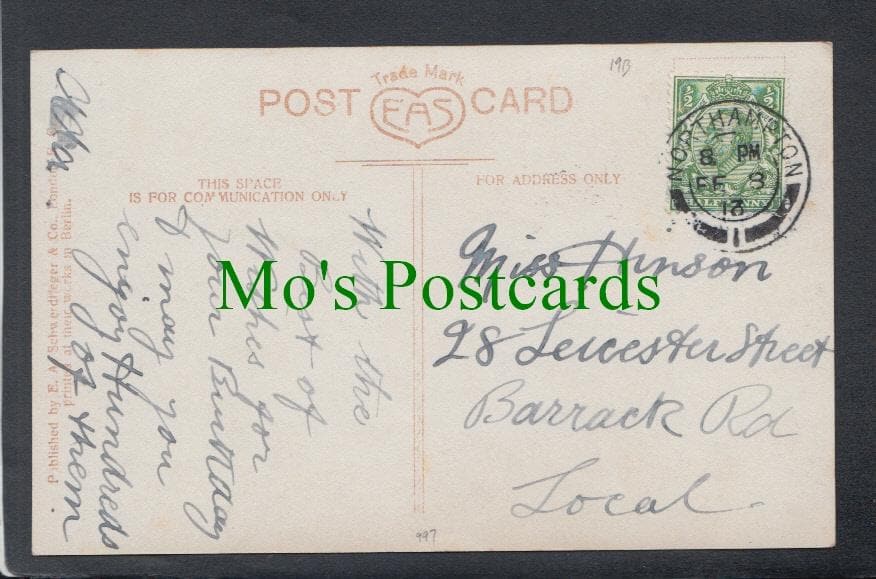 Trade Mark
POST EAS CARD
19B
½ ½
HALFPENNY
NORTHAMPTON
8 PM
FE 8
13
11
THIS SPACE
IS FOR COMMUNICATION ONLY
FOR ADDRESS ONLY
With the
best of
Wishes for
your Birthday
I may you
enjoy Hundreds
of them.
Miss Hinson
28 Leicester Street
Barrack Rd
Local.
Published by E. A. Schwerdtfeger & Co., London E.
printed at their works in Berlin.
997
Mo's Postcards